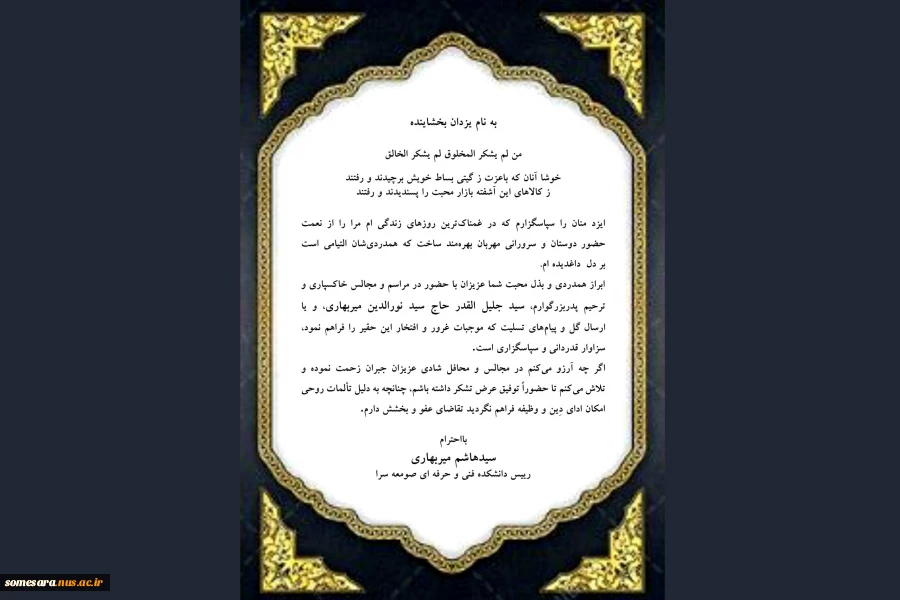 به نام یزدان بخشاینده
من لم یشکر المخلوق لم یشکر الخالق
خوشا آنان که باعزت ز گیتی بساط خویش برچیدند و رفتند
ز کالاهای این آشفته بازار محبت را پسندیدند و رفتند
ایزد منان را سپاسگزارم که در غمناک‌ترین روزهای زندگی ام مرا را از نعمت
حضور دوستان و سرورانی مهربان بهره‌مند ساخت که همدردی‌شان التیامی است
بر دل داغدیده ام.
ابراز همدردی و بذل محبت شما عزیزان با حضور در مراسم و مجالس خاکسپاری و
ترحیم پدربزرگوارم، سید جلیل القدر حاج سید نورالدین میربهاری، و یا
ارسال گل و پیام‌های تسلیت که موجبات غرور و افتخار این حقیر را فراهم نمود،
سزاوار قدردانی و سپاسگزاری است.
اگر چه آرزو می‌کنم در مجالس و محافل شادی عزیزان جبران زحمت نموده و
تلاش می‌کنم تا حضوراً توفیق عرض تشکر داشته باشم، چنانچه به دلیل تألمات روحی
امکان ادای دِین و وظیفه فراهم نگردید تقاضای عفو و بخشش دارم.
بااحترام
سیدهاشم میربهاری
رییس دانشکده فنی و حرفه ای صومعه سرا
somesara.nus.ac.ir